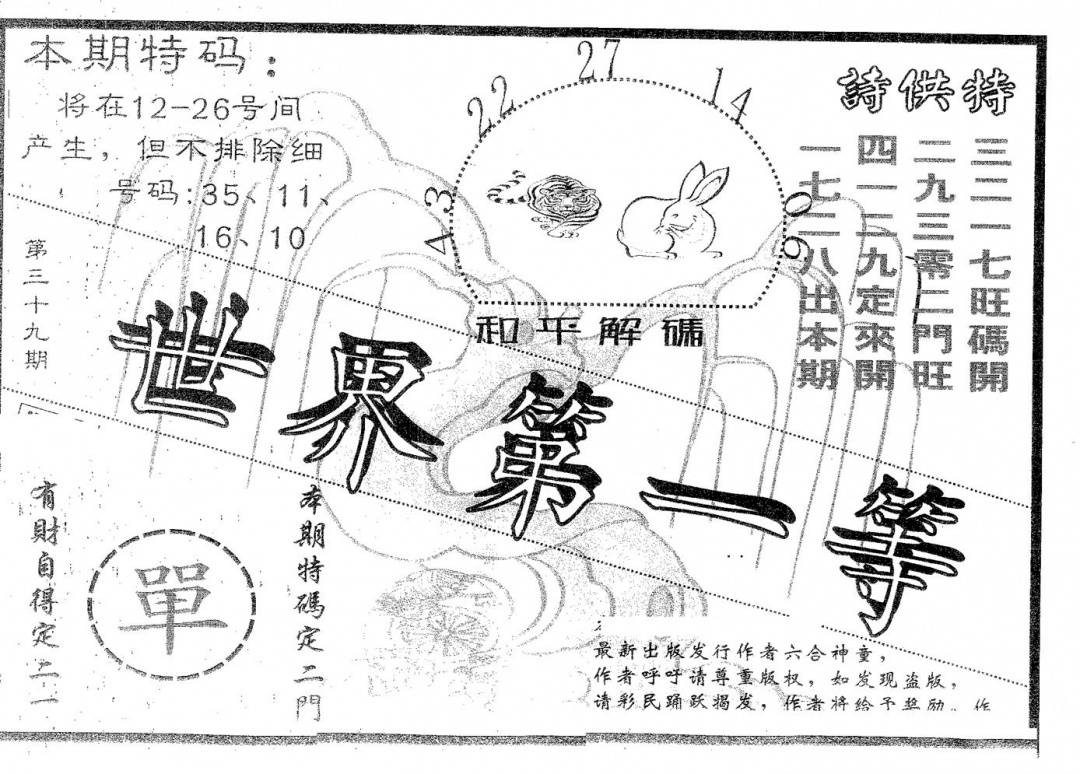 本期特码：
将在12-26号间
产生，但不排除细
号码:35、11、
16、10
第三十九期
43
22
27
14
09
和平解碼
詩供特
三二一七旺碼開
二九三零二門旺
四一二九定來開
一七二八出本期
世界第一等
有財自得定二一
單
本期特碼定二門
最新出版发行作者六合神童，
作者呼吁请尊重版权，如发现盗版，
请彩民踊跃揭发，作者将给予奖励。作